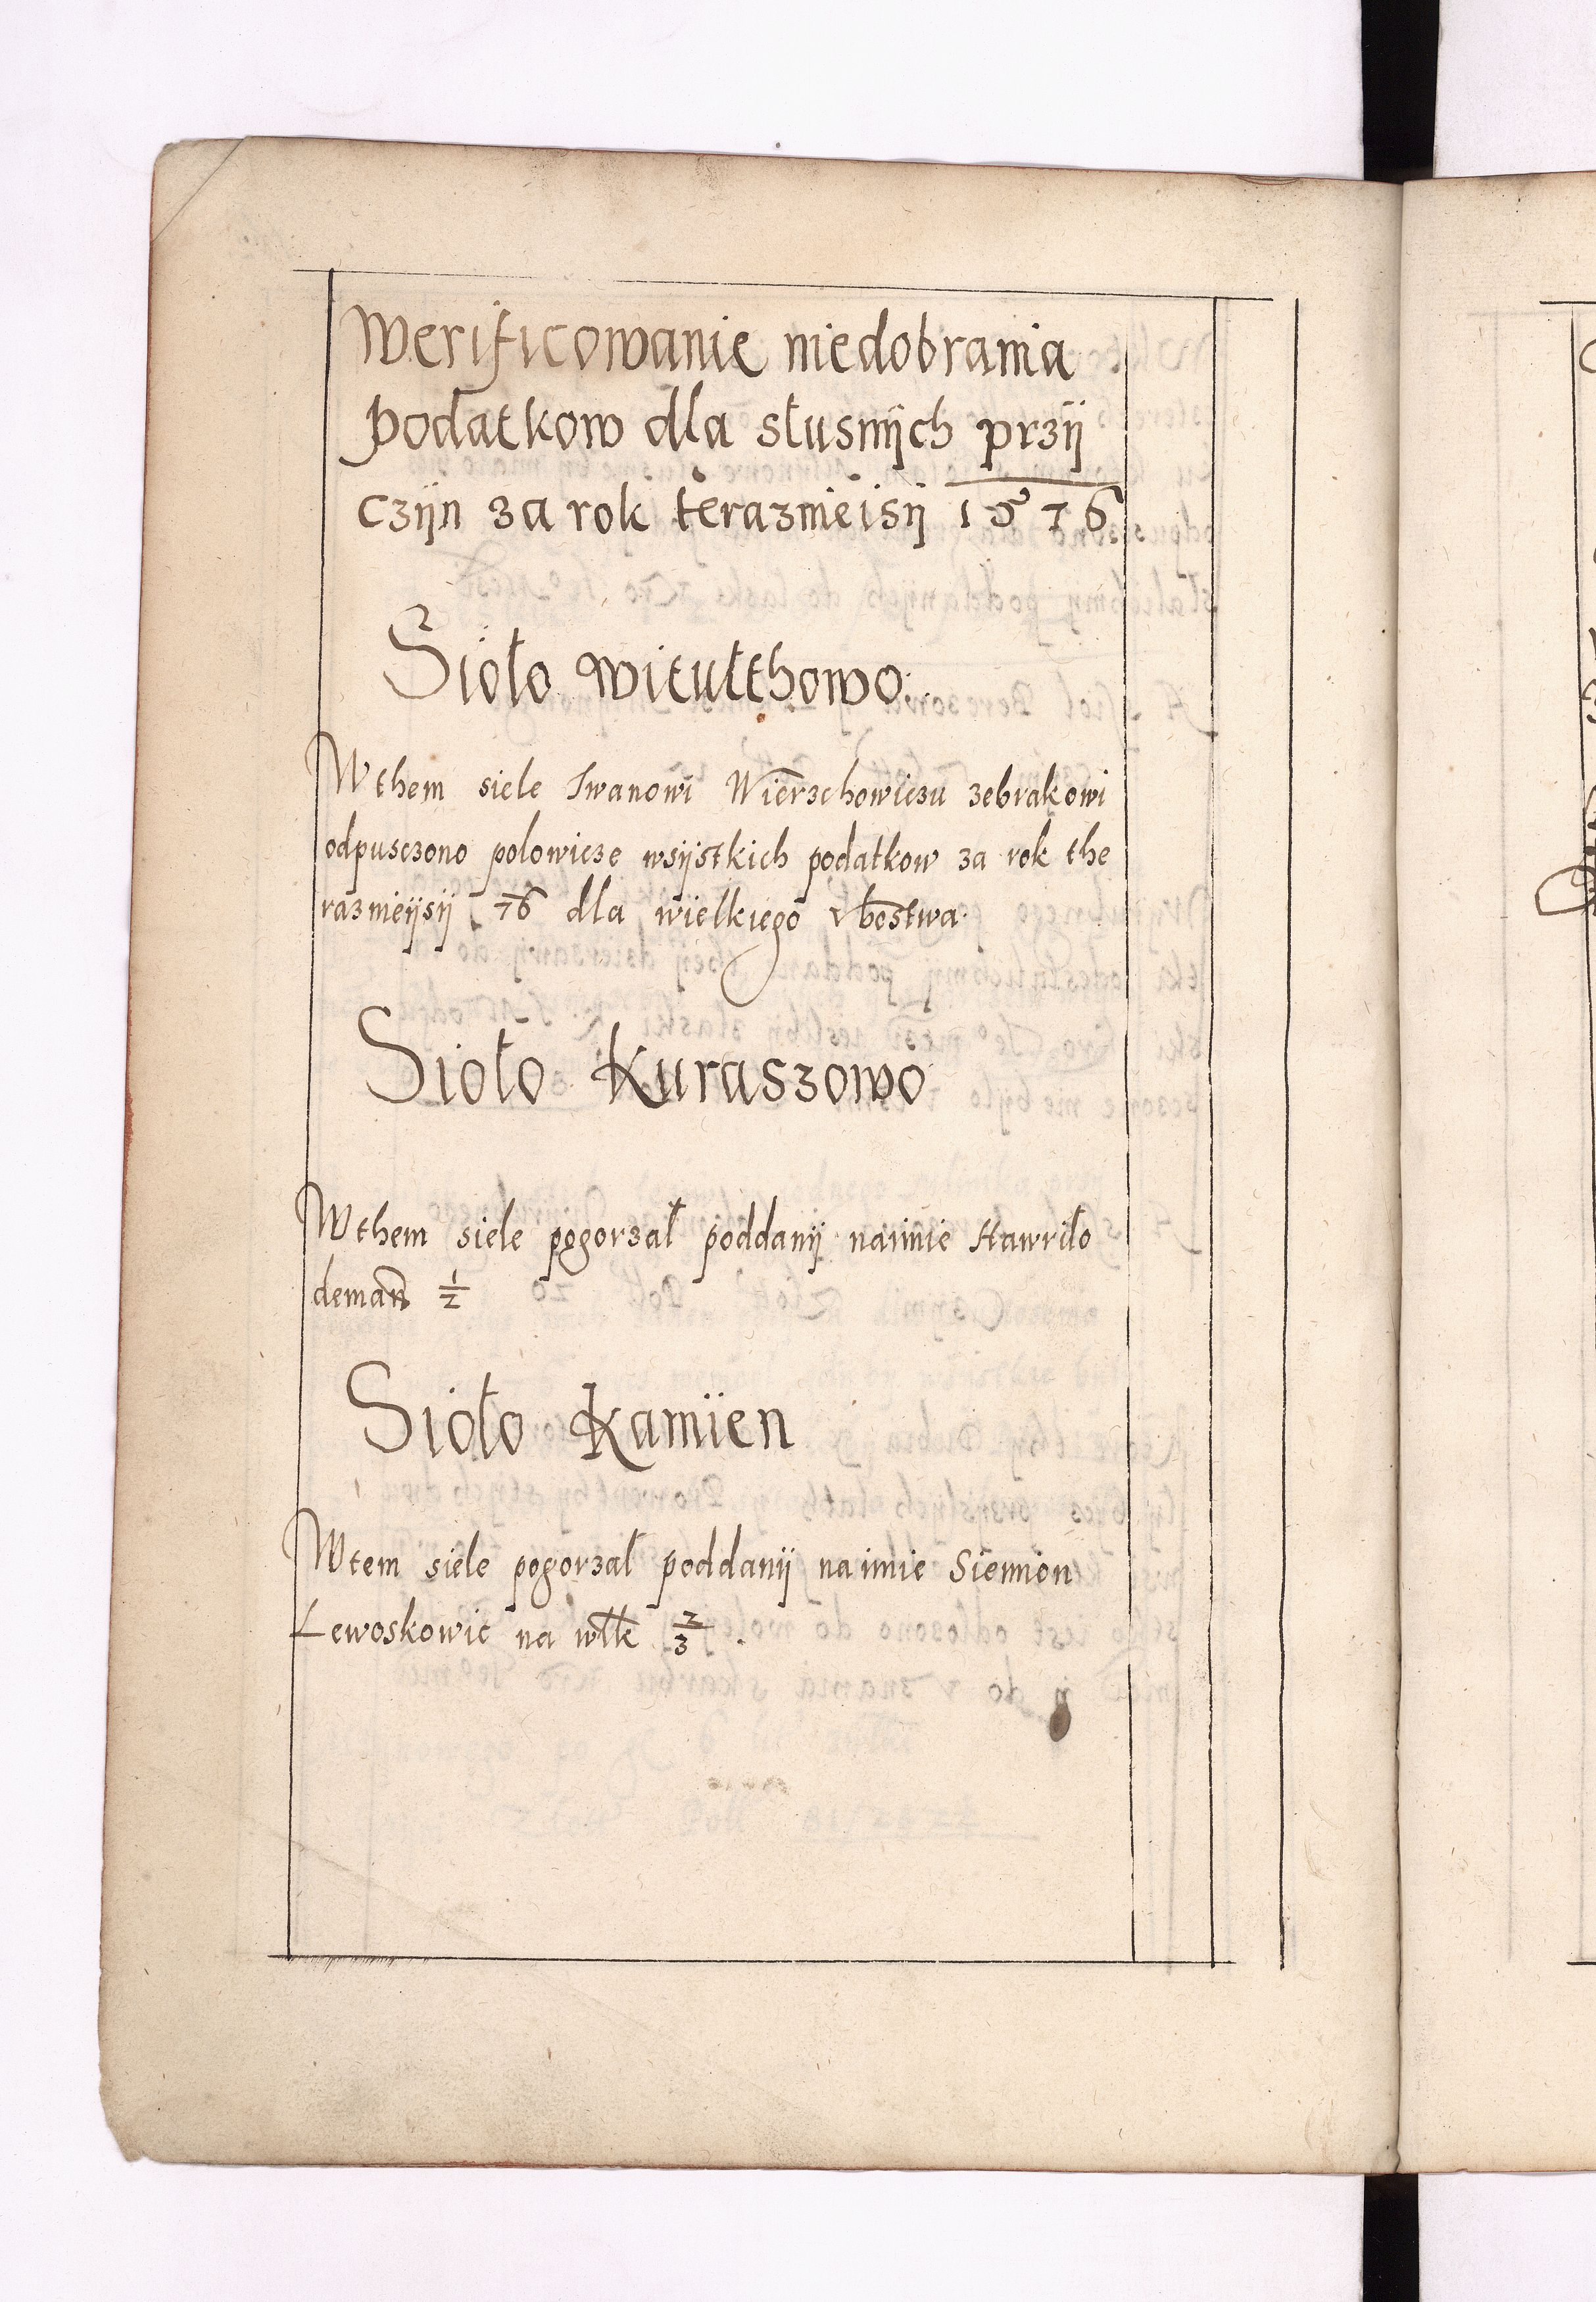 Werificowanie niedobrania
podatkow dla słusnÿch przÿ
czÿn za rok terazmeisÿ 1576
Sioło witułthowo
Wthem siele Iwanowi Wierzchowiczu zebrakowi
odpusczono polowicze wsÿstkich podatkow za rok the
razmeÿsÿ 76 dla wielkiego vbostwa
Sioło Kuraszowo
Wthem siele pogorzał poddanÿ naimie Hawriło
deman 1/2
Sioło Kamien
Wtem siele pogorzał poddanÿ na imie Siemion
Lewoskowic na włk 2/3